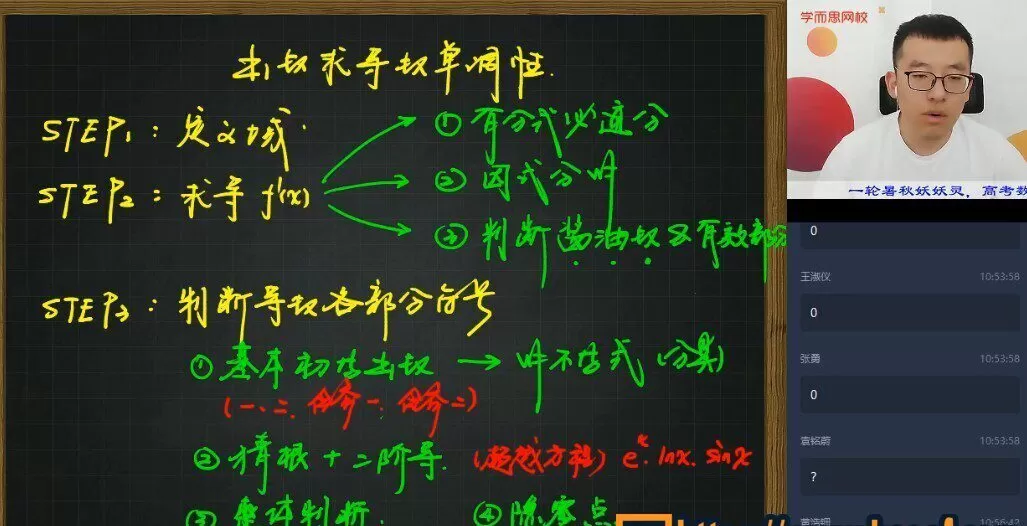 学而思网校
函数求导权单调性.
STEP1：定义域.
STEP2：求导 f'(x)
① 有分式必通分
② 因式分解
③ 判断酱油权及有效部分
STEP3：判断导权各部分符号
① 基本初等函权 → 解不等式（分类）
（一、二、
② 猜根 + 二阶导. （超越方程）eˣ. lnx. sinx
③ 整体判断.
④ 隐零点
一轮暑秋妖妖灵，高考数
0
王淑仪 10:53:58
0
张勇 10:53:58
0
袁铭蔚 10:53:58
?
10:56:42